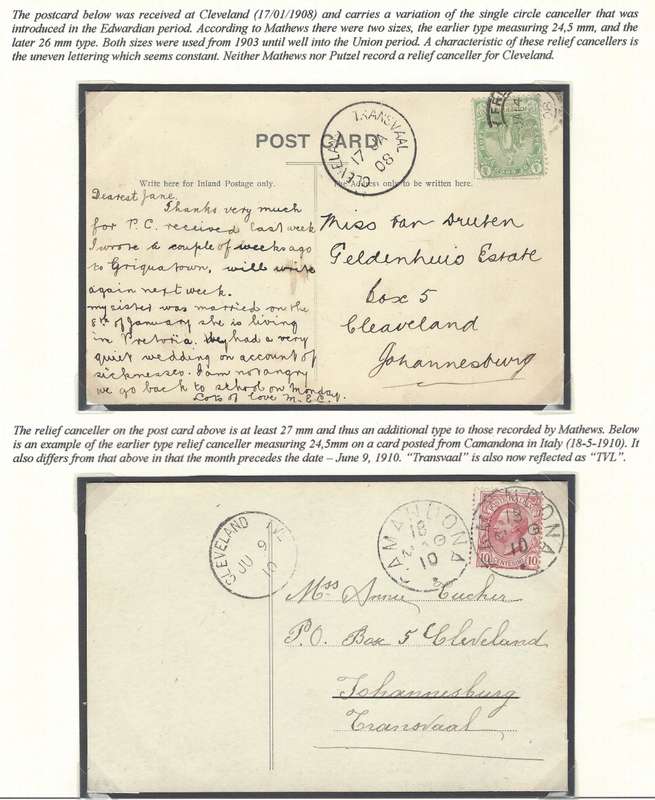 The postcard below was received at Cleveland (17/01/1908) and carries a variation of the single circle canceller that was
introduced in the Edwardian period. According to Mathews there were two sizes, the earlier type measuring 24,5 mm, and the
later 26 mm type. Both sizes were used from 1903 until well into the Union period. A characteristic of these relief cancellers is
the uneven lettering which seems constant. Neither Mathews nor Putzel record a relief canceller for Cleveland.
POST CARD
TRANSVAAL
CLEVELAND
17 JA
08
Write here for Inland Postage only.
The Address only to be written here.
Dearest Jane,
Thanks very much
for P.C. received last week
I wrote a couple of weeks ago
to Griquatown, will write
again next week.
my sister was married on the
8th of January she is living
in Pretoria. they had a very
quiet wedding on account of
sicknesses. I am not angry
we go back to school on Monday.
Lots of love M.E.C.V.
Miss Van Druten
Geldenhuis Estate
Box 5
Cleaveland
Johannesburg
The relief canceller on the post card above is at least 27 mm and thus an additional type to those recorded by Mathews. Below
is an example of the earlier type relief canceller measuring 24,5mm on a card posted from Camandona in Italy (18-5-1910). It
also differs from that above in that the month precedes the date – June 9, 1910. “Transvaal” is also now reflected as “TVL”.
CLEVELAND
JU 9
10
CAMANDONA
18
10
10 CENTESIMI 10
Mss Anne Tucher
P.O. Box 5 Cleveland
Johannesburg
Transvaal